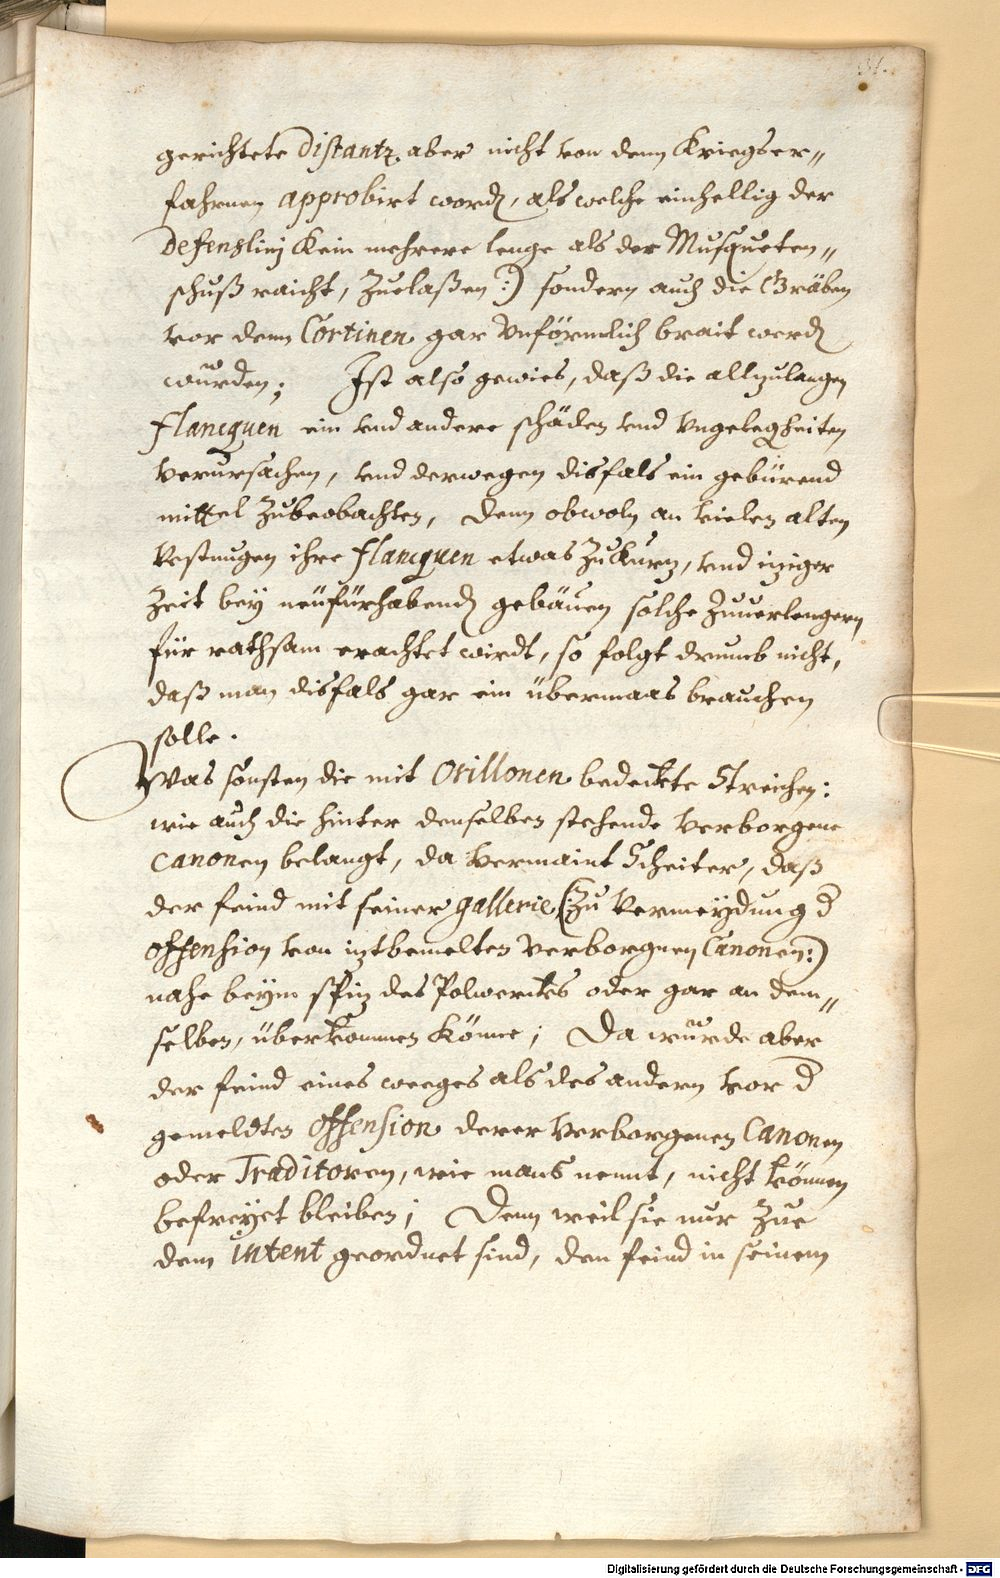 31.
gerichtete Distantz, aber nicht von denn Kriegser„
fahrnen approbirt word, als welche einhellig der
Defenslinj kein mehrere lenge als der Musqueten„
schuß raicht, Zuelaßen:) sondern auch die Gräben
vor denn Cortinen gar vnförmlich brait werd
würden; Ist also gewies, daß die allzulangen
Flancquen ein vnd andere schäden vnd vngelegheiten
verursachen, vnd derwegen disfals ein gebürend
mittel Zubeobachten, Denn obwoln an vielen alten
Vestungen ihre Flancquen etwas Zukurz, vnd iziger
Zeit bey neüfürhabend gebäuen solche Zuuerlengern
für rathsam erachtet wirdt, so folgt drumb nicht,
daß man disfals gar ein übermaas brauchen
solle.
Was sonsten die mit Orillonen bedeckte Streichen:
wie auch die hinter denselben stehende verborgene
Canonen belangt, da vermaint Scheiter, daß
der feind mit seiner gallerie (:Zu vermeydung d
offension von iztbemelten verborgnen Canonen:)
nahe beym spiz des Polwercks oder gar an dem„
selben, überkommen könne; Da würde aber
der feind eines weeges als des andern vor d
gemeldten offension derer verborgenen Canonen
oder Traditoren, wie mans nennt, nicht können
befreyet bleiben; Denn weil sie nur Zue
dem intent geordnet sind, den feind in seinem
Digitalisierung gefördert durch die Deutsche Forschungsgemeinschaft - DFG